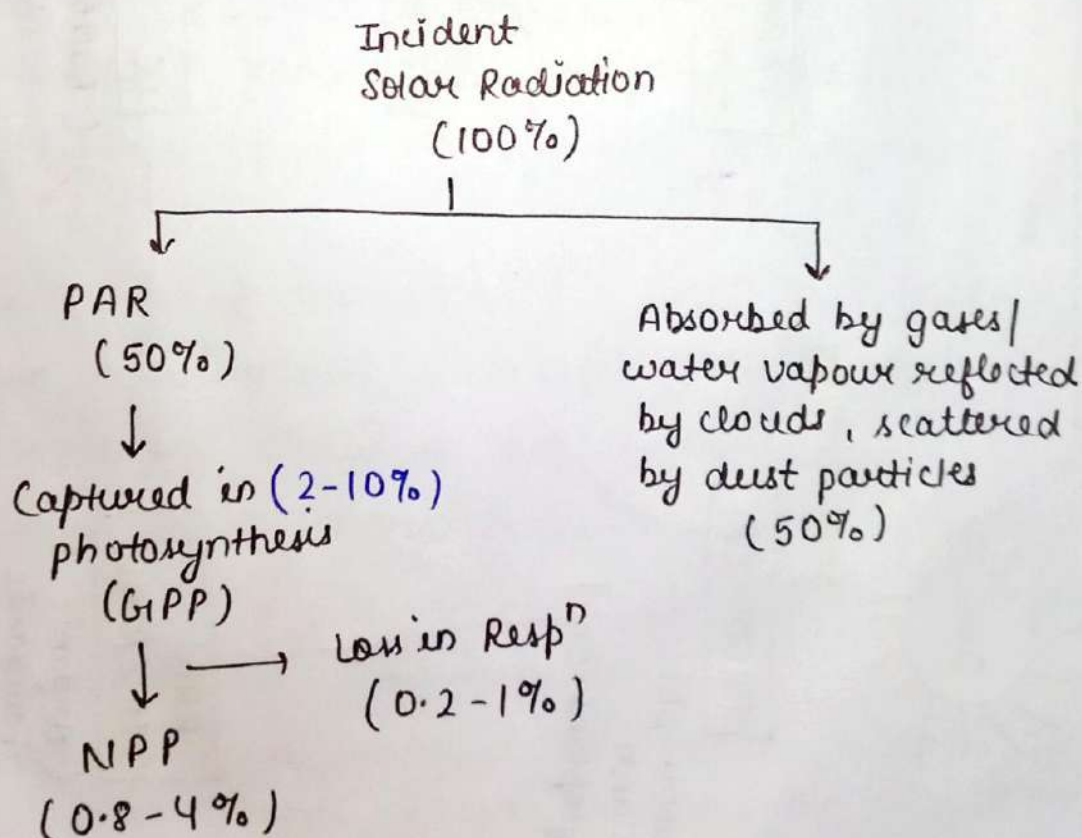 Incident
Solar Radiation
(100%)
PAR
(50%)
Captured in (2-10%)
photosynthesis
(GPP)
Loss in Respⁿ
(0.2-1%)
NPP
(0.8-4%)
Absorbed by gases/
water vapour reflected
by clouds, scattered
by dust particles
(50%)